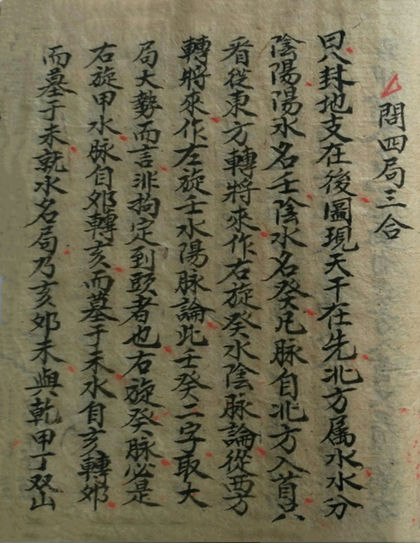 問四局三合
曰八卦地支在後圖現天干在先北方属水水分
陰陽陽水名壬陰水名癸凡脉自北方入首只
看從東方轉將來作右旋癸水陰脉論從西方
轉將來作左旋壬水陽脉論此壬癸二字取大
局大勢而言非拘定到頭者也右旋癸脉必是
右旋甲水脉自卯轉亥而墓于未水自亥轉卯
而墓于未就水名局乃亥卯未與乾甲丁双山